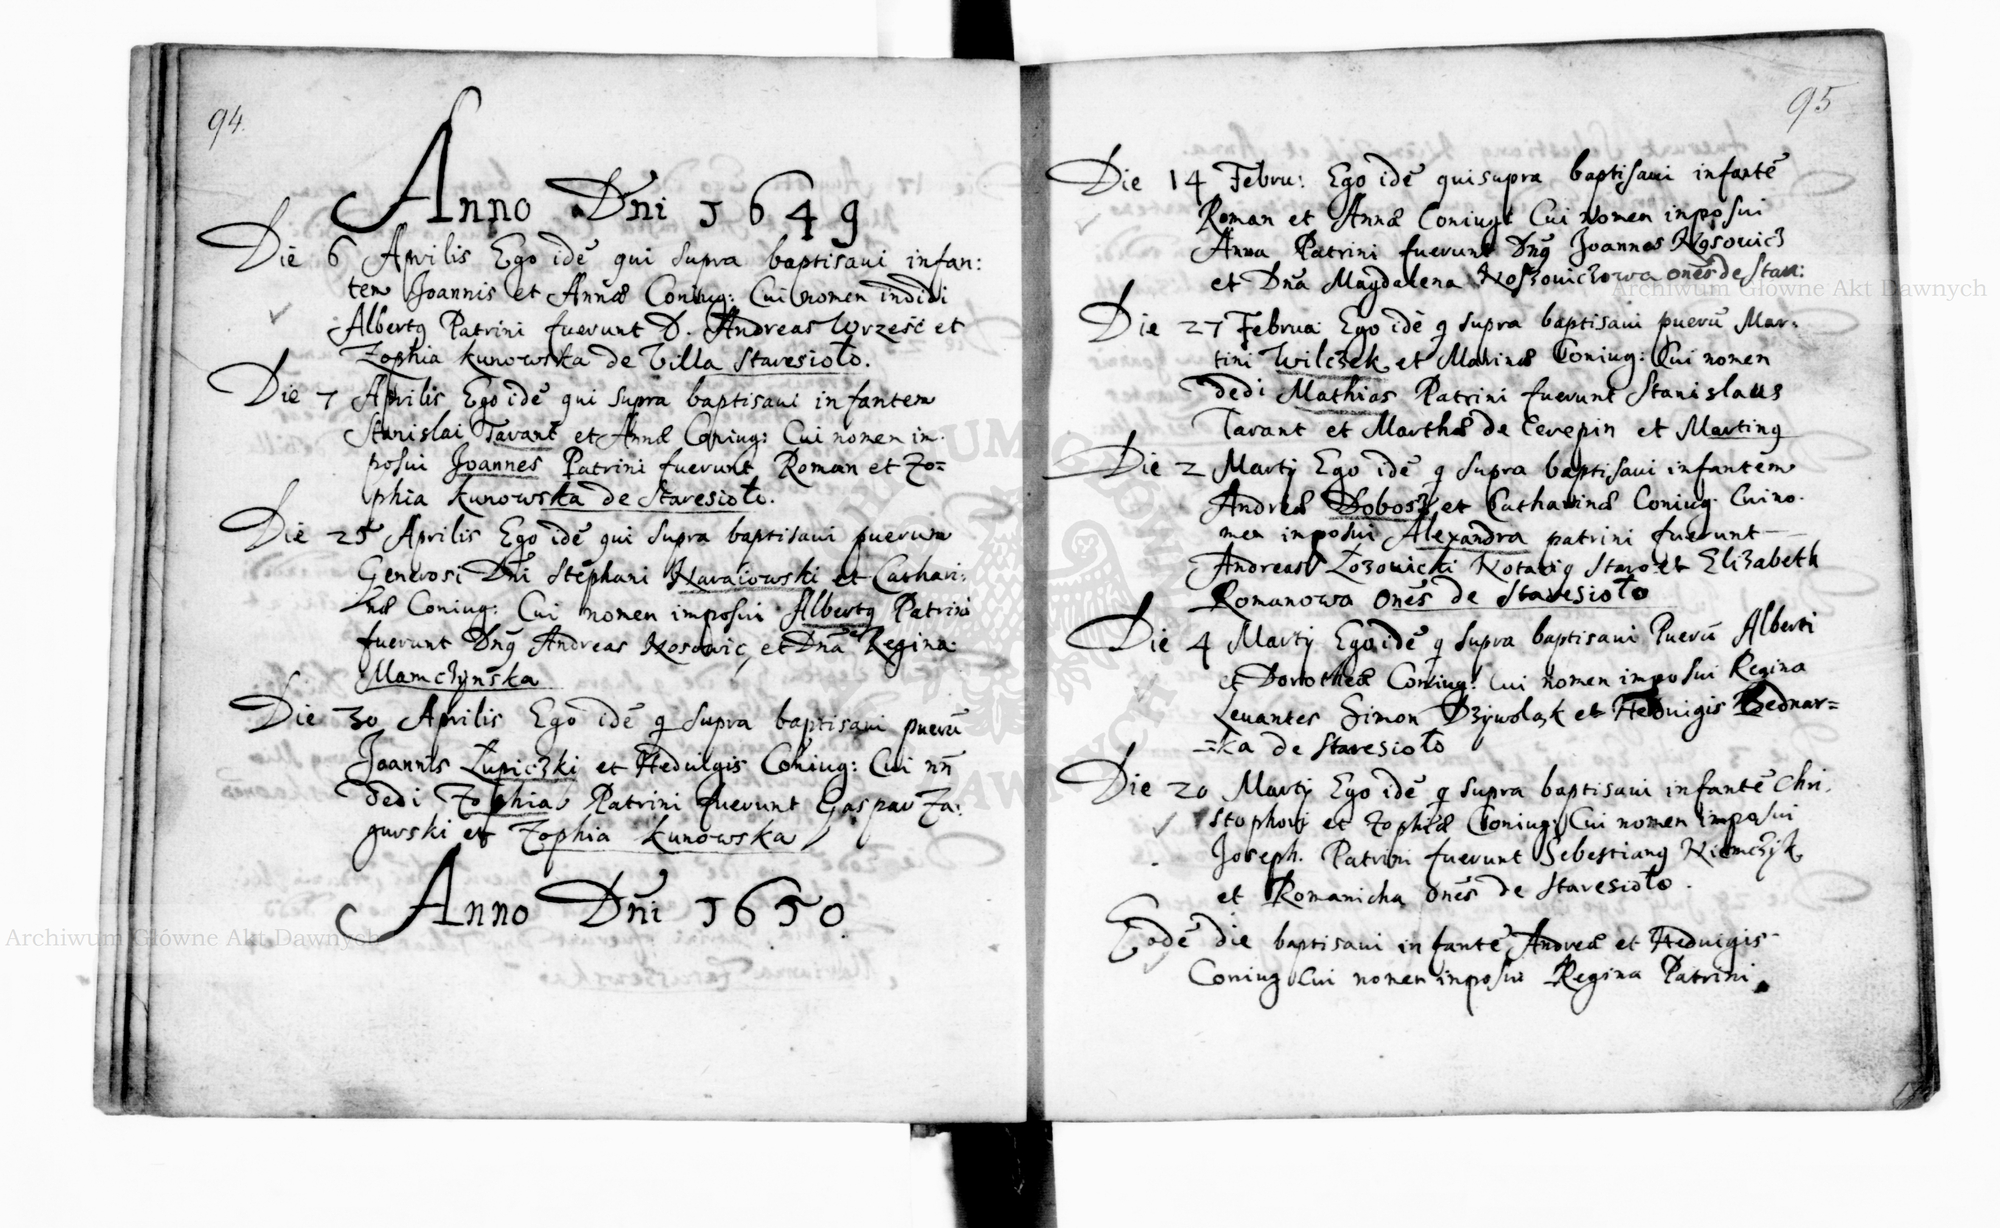 94.
Anno Dni 1649
Die 6 Aprilis Ego idē qui supra baptisavi infan:
tem Joannis et Annæ Coniug: Cui nomen indidi
Albertq Patrini fuerunt D. Andreas Wrześć et
Zophia Kunowska de Villa Staresioło.
Die 7 Aprilis Ego idē qui supra baptisaui infantem
Stanislai Tarant et Annæ Coniug: Cui nomen im-
posui Joannes Patrini fuerunt Roman et Zo=
phia Kunowska de Staresioło.
Die 25 Aprilis Ego idē qui supra baptisaui puerum
Generosi Dni Stephani Naraiowski et Cathari:
næ Coniug: Cui nomen imposui Albertq Patrini
fuerunt Dnq Andreas Kosowic, et Dna Regina
Mamczyńska
Die 30 Aprilis Ego idē q supra baptisaui puerū
Joannis Łupiczki et Heduigis Coniug: Cui nn̄
dedi Zophia Patrini fuerunt Gaspar Za:
gurski et Zophia Kunowska
Anno Dni 1650.
95
Die 14 Febru: Ego idē qui supra baptisaui infantē
Roman et Annæ Coniugū Cui nomen imposui
Anna Patrini fuerunt Dnq Joannes
et Dna Magdalena onēs de Stari:
Die 27 Februa: Ego idē q supra baptisaui puerū Mar-
tini Wilczek et Marinæ Coniug: Cui nomen
dedi Mathias Patrini fuerunt Stanislaus
Tarant et Marthæ de Cerepin et Martinq
Die 2 Martij Ego idē q supra baptisaui infantem
Andreæ Dobosz et Catharinæ Coniug: Cui no-
men imposui Alexandra patrini fuerunt
Andreas Łozowicki Notariq Staro: et Elizabeth
Romanowa onēs de Staresioło
Die 4 Martij Ego idē q supra baptisaui Puerū Alberti
et Dorotheæ Coniug: Cui nomen imposui Regina
Leuantes Simon et Heduigis Bednar=
=ka de Staresioło
Die 20 Martij Ego idē q supra baptisaui infantē Chri-
stophori et Zophiæ Coniug: Cui nomen imposui
Joseph. Patrini fuerunt Sebestianq Niemczyk
et Romanicha onēs de Staresioło.
Eodē die baptisaui infantē Andreæ et Heduigis
Coniug Cui nomen imposui Regina Patrini
Archiwum Główne Akt Dawnych
Archiwum Główne Akt Dawnych